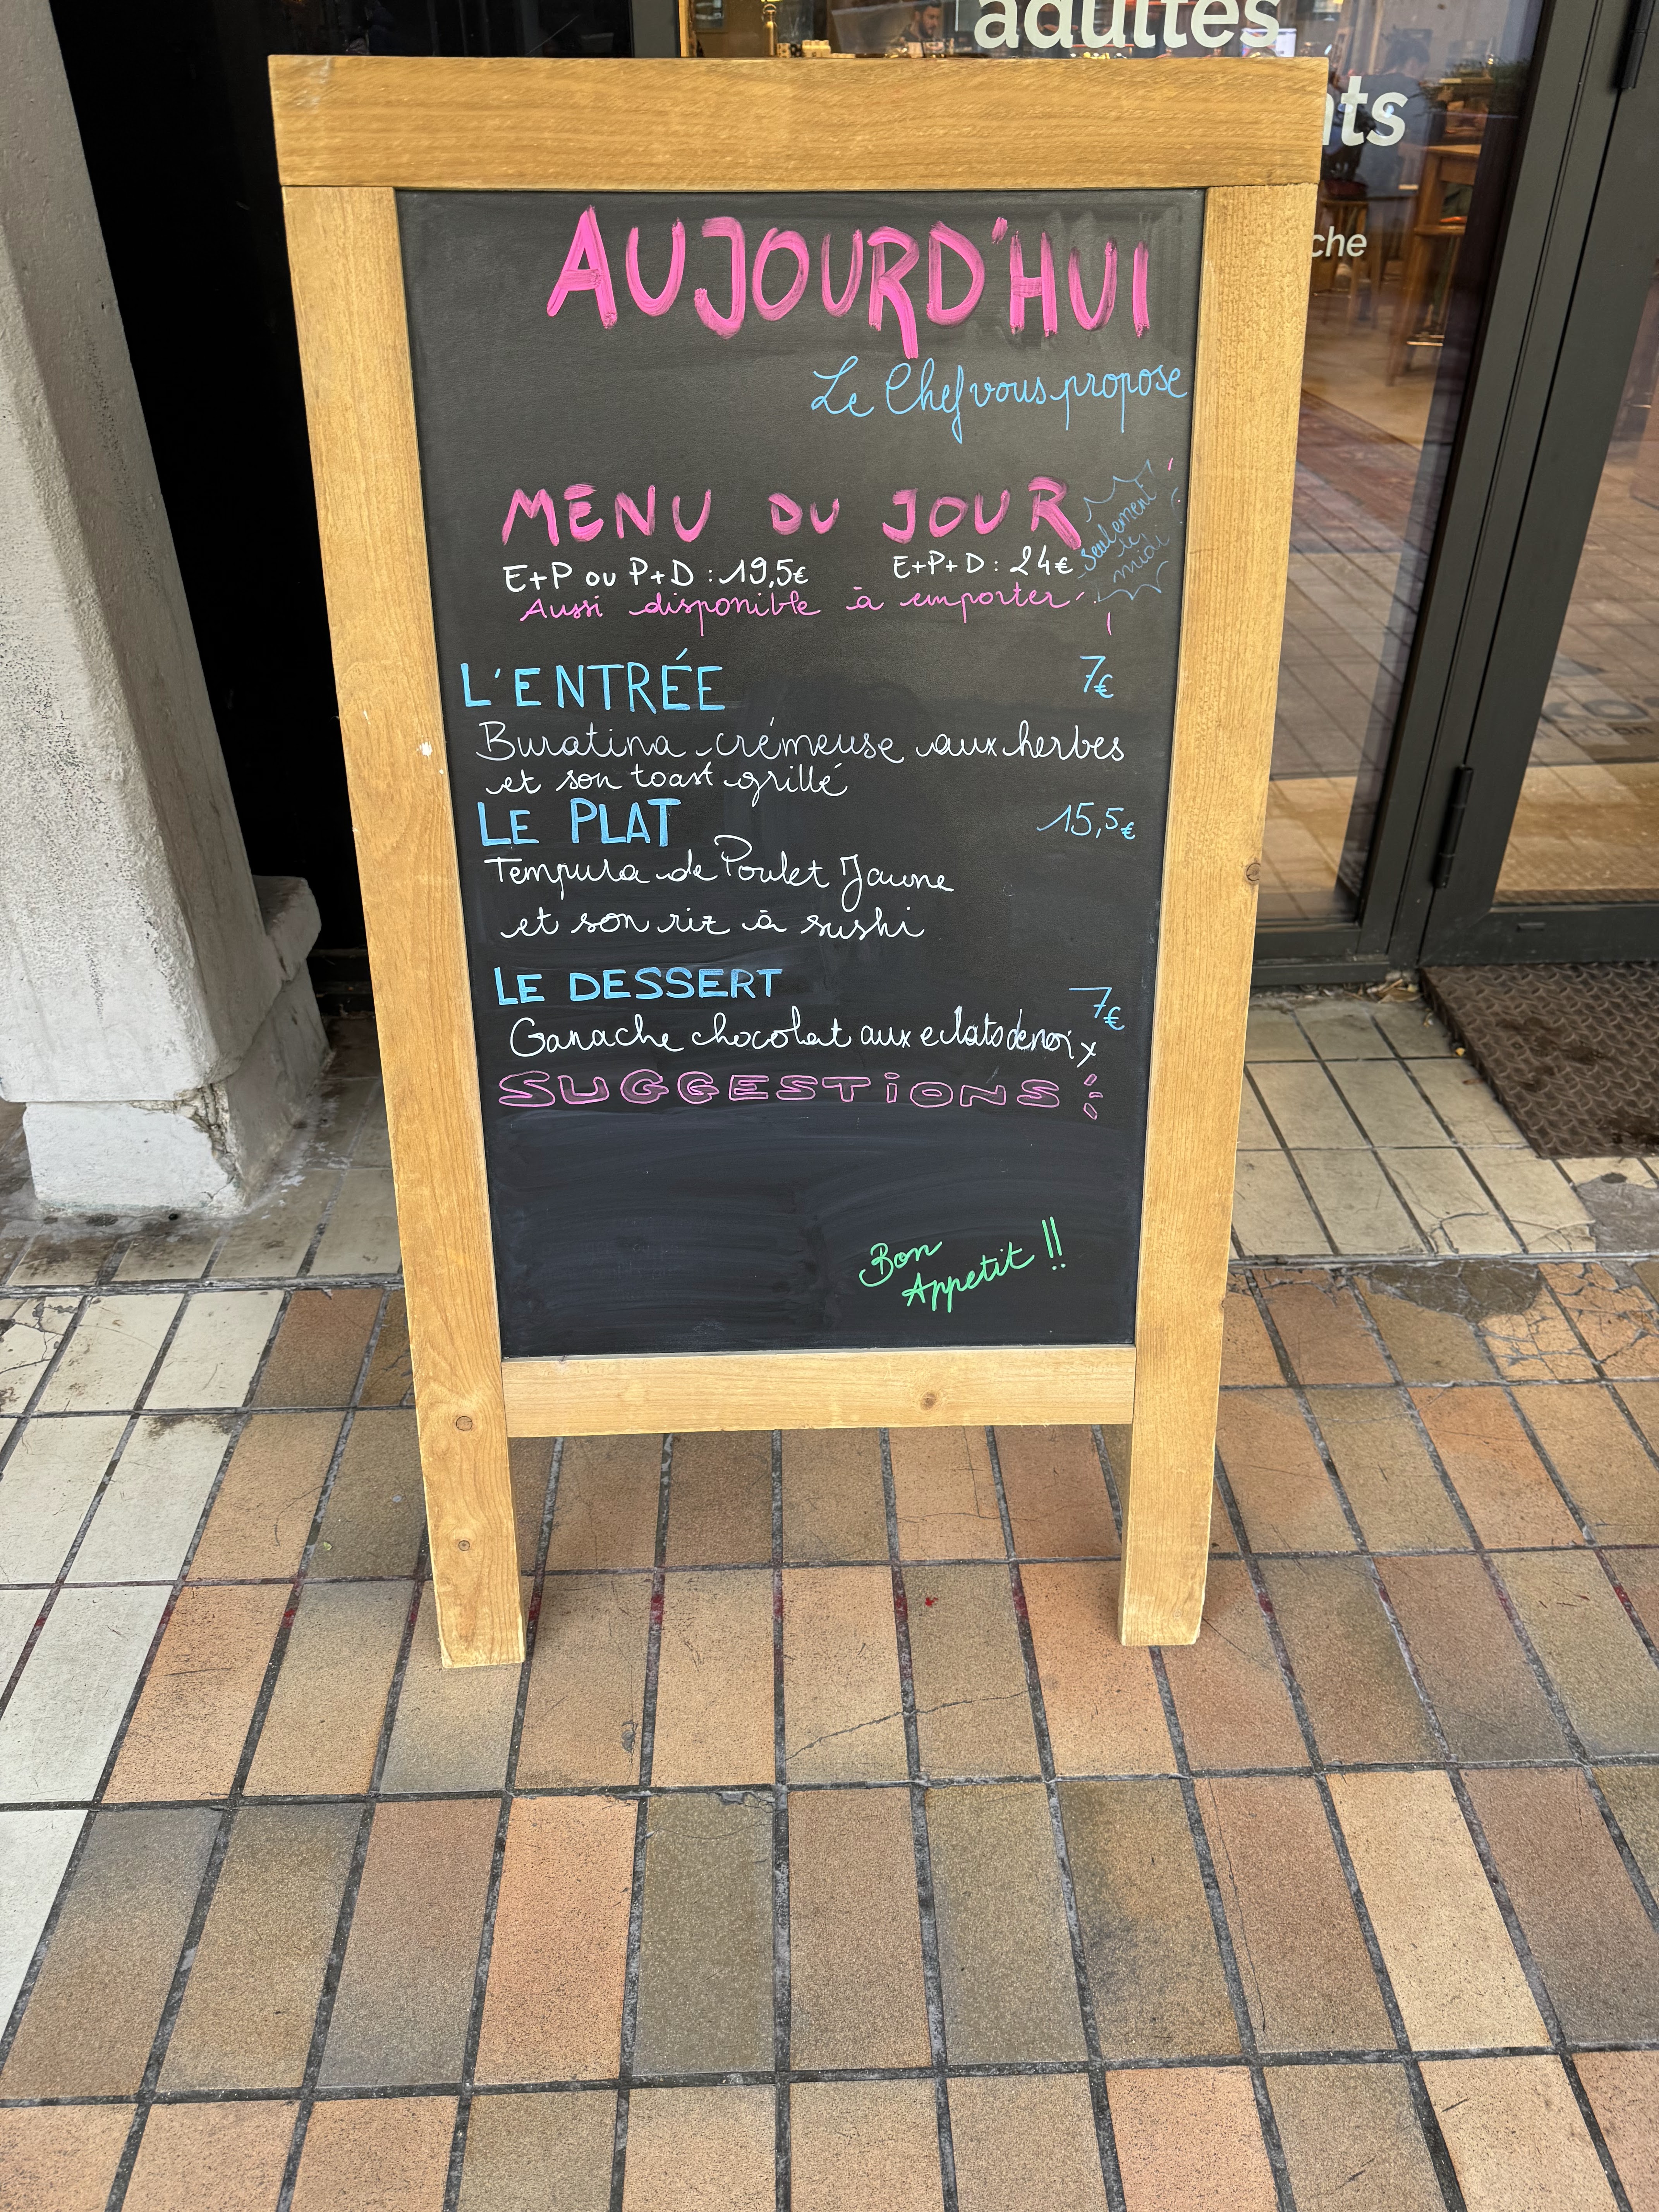 adultes
nts
che
AUJOURD'HUI
Le Chef vous propose
MENU DU JOUR
seulement
le
midi
E+P ou P+D : 19,5€ E+P+D : 24€
Aussi disponible à emporter
L'ENTRÉE 7€
Buratina crémeuse aux herbes
et son toast grillé
LE PLAT 15,5€
Tempura de Poulet Jaune
et son riz à sushi
LE DESSERT 7€
Ganache chocolat aux eclats de noix
SUGGESTIONS :
Bon
Appetit !!